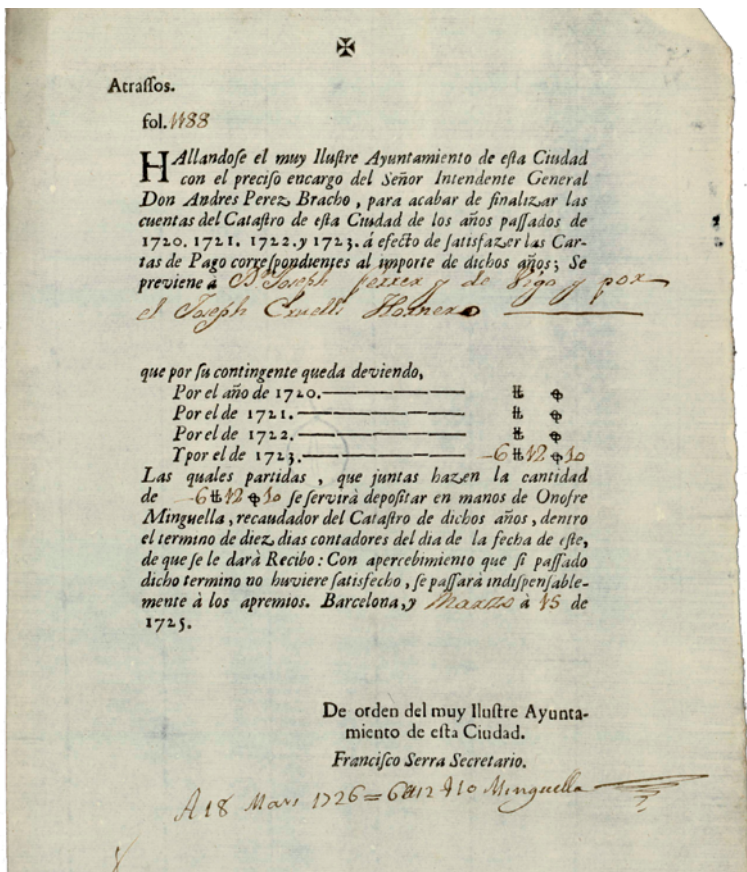 ✠
Atrassos.
fol. 1188
HAllandose el muy Ilustre Ayuntamiento de esta Ciudad
con el preciso encargo del Señor Intendente General
Don Andres Perez Bracho, para acabar de finalizar las
cuentas del Catastro de esta Ciudad de los años passados de
1720. 1721. 1722. y 1723. á efecto de satisfazer las Car-
tas de Pago correspondientes al importe de dichos años; Se
previene à Dn. Joseph ferrer y de Vigo y por
el Joseph Cruells Hornero
que por su contingente queda deviendo,
Por el año de 1720. ————— ℔ ϕ
Por el de 1721. ————— ℔ ϕ
Por el de 1722. ————— ℔ ϕ
Y por el de 1723. ————— 6 ℔ 12 ϕ 10
Las quales partidas, que juntas hazen la cantidad
de 6 ℔ 12 ϕ 10 se servirà depositar en manos de Onofre
Minguella, recaudador del Catastro de dichos años, dentro
el termino de diez dias contadores del dia de la fecha de este,
de que se le darà Recibo: Con apercebimiento que si passado
dicho termino no huviere satisfecho, se passarà indispensable-
mente à los apremios. Barcelona, y Marzo à 15 de
1725.
De orden del muy Ilustre Ayunta-
miento de esta Ciudad.
Francisco Serra Secretario.
A 18 Mars 1726 = 6 ℔ 12 ϕ 10 Minguella